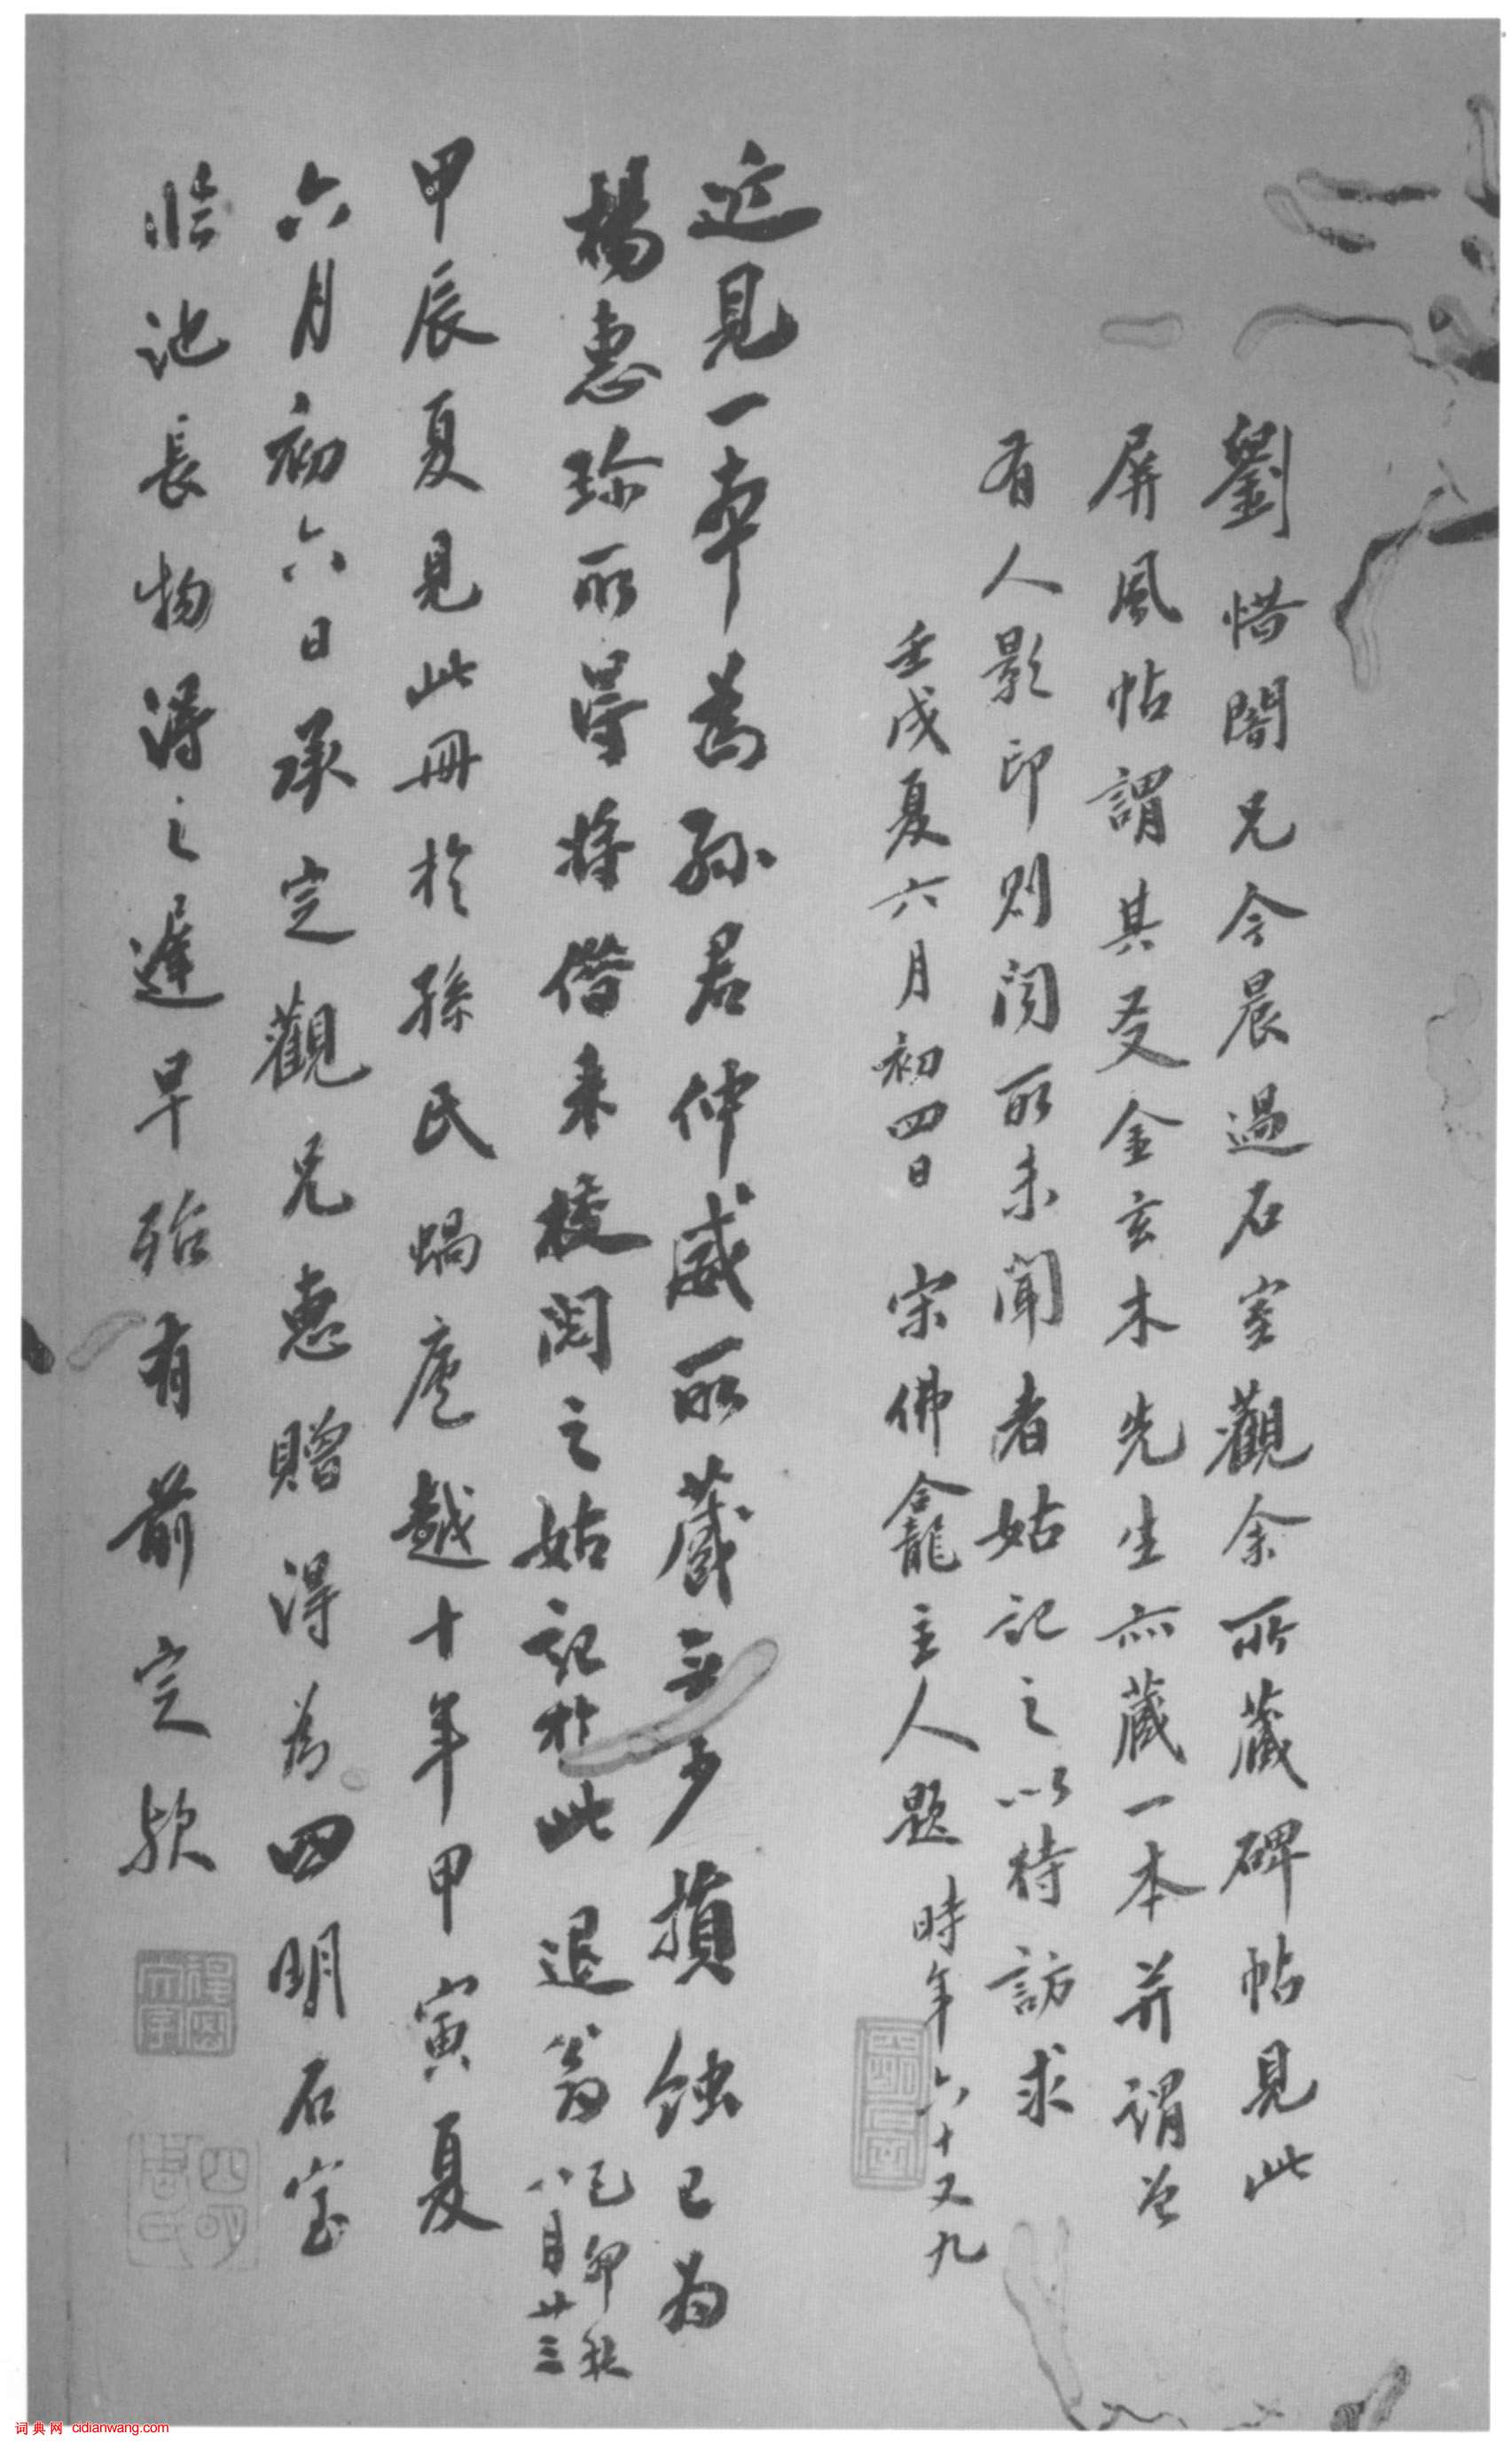 劉惜闇兄今晨過石室觀余所藏碑帖見此
屏風帖謂其友金玄木先生亦藏一本并謂曾
有人影印則閱所未聞者姑記之以待訪求
壬戌夏六月初四日 宋佛龕主人題 時年六十又九
近見一本為孫君仲威所藏無少損蝕已為
楊惠珍所得將借來校閱之姑記於此 退翁 己卯秋
八月廿三
甲辰夏見此冊於孫氏蝸廬越十年甲寅夏
六月初六日承定觀兄惠贈得為四明石室
臨池長物得之遲早殆有前定歟
词典网 cidianwang.com